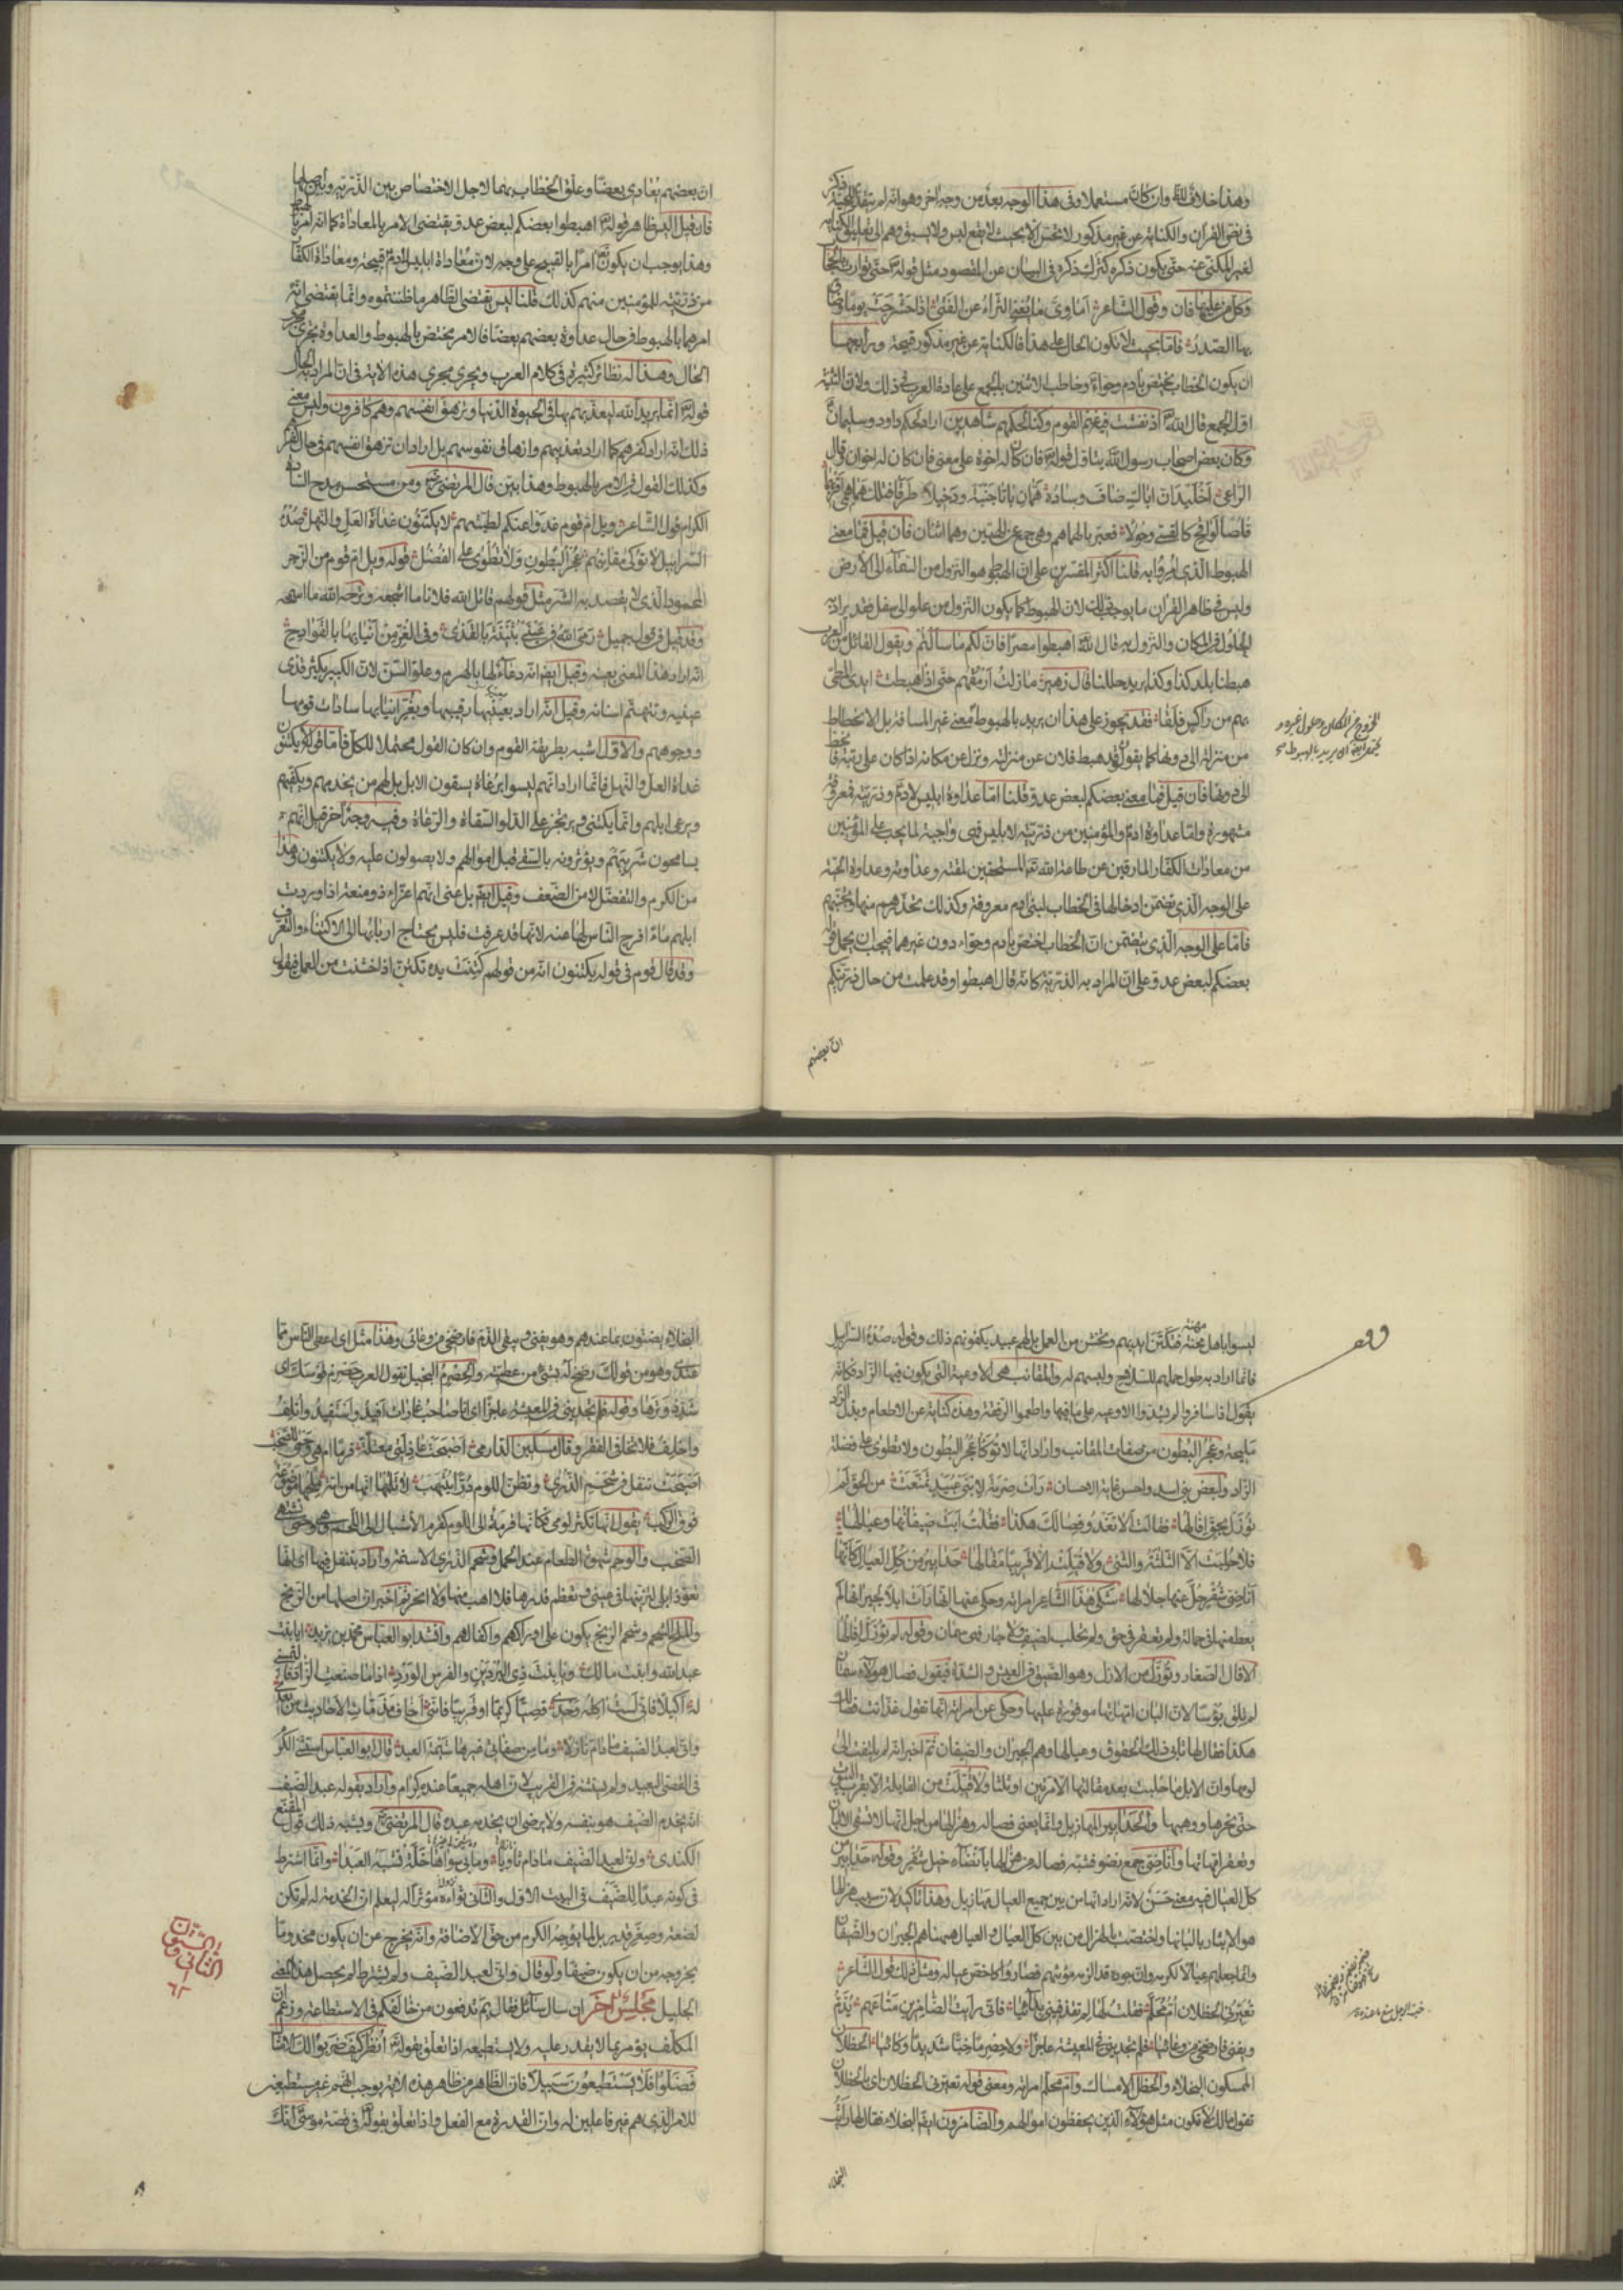 وهذا خلاف لله وان كان مستعملا وفى هذا الوجه بعد من وجه اخر وهو انه لم يتقدم للحية ذكر
فى نص القران والكناية عن غير مذكور لا تحسن الا بحيث لا يقع لبس ولا يسبق وهم الى تعلق الكناية
لغير المكنى عنه حتى يكون ذكره كترك ذكره فى البيان عن المقصود مثل قوله حتى توارت بالحجاب
وكل من عليها فان وقول الشاعر اماوى ما يغنى الثراء عن الفتى اذا حشرجت يوما وضاق
بها الصدر فاما بحيث لا يكون الحال على هذا فالكناية عن غير مذكور قبيحة ورابعها
ان يكون الخطاب يختص بادم وحواء وخاطب الاثنين بالجمع على عادة العرب فى ذلك ولان التثنية
اول الجمع قال الله اذ نفشت فيه غنم القوم وكنا لحكمهم شاهدين اراد لحكم داود وسليمان
وكان بعض اصحاب رسول الله يتاول قوله فان كان له اخوة على معنى فان كان له اخوان قال
الراعى اخليد ان اباك ضاف وساده همان باتا جنبة ودخيلا طرقا فتلك هماهمى اقريهما
قلصا لواقح كالقسى وحولا فعبر بالهماهم وهى جمع عن الهمين وهما اثنان فان قيل فما معنى
الهبوط الذى امروا به قلنا اكثر المفسرين على ان الهبوط هو النزول من السماء الى الارض
وليس فى ظاهر القران ما يوجب ذلك لان الهبوط كما يكون النزول من علو الى سفل فقد يراد به
الحلول فى المكان والنزول به قال الله اهبطوا مصرا فان لكم ما سالتم ويقول القائل من العرب
هبطنا بلد كذا وكذا يريد حللنا قال زهير ما زلت ارمقهم حتى اذا هبطت ايدى المطى
بهم من راكس فلقا فقد يجوز على هذا ان يريد بالهبوط معنى غير المسافة بل الانحطاط
من منزلة الى دونها كما يقولون قد هبط فلان عن منزلته ونزل عن مكانه اذا كان على رتبة فانحط
الى دونها فان قيل فما معنى بعضكم لبعض عدو قلنا اما عداوة ابليس لادم وذريته فمعروفة
مشهورة واما عداوة ادم والمؤمنين من ذريته لابليس فهى واجبة لما يجب على المؤمنين
من معادات الكفار المارقين عن طاعة الله المستحقين لمقته وعداوته وعداوة الحية
على الوجه الذى تضمن ادخالها فى الخطاب لبنى ادم معروفة وكذلك نحذرهم منها ونجنبهم
فاما على الوجه الذى يتضمن ان الخطاب اختص بادم وحواء دون غيرهما فيجب ان يحمل قوله
بعضكم لبعض عدو على ان المراد به الذرية كانه قال اهبطوا وقد علمت من حال ذريتكم
ان بعضهم
ان بعضهم يعادى بعضا وعلق الخطاب بهما لاجل الاختصاص بين الذرية وبين اصلها
فان قيل اليس ظاهر قوله اهبطوا بعضكم لبعض عدو يقتضى الامر بالمعاداة كما انه امر بالهبوط
وهذا يوجب ان يكون امرا بالقبيح على وجه لان معاداة ابليس لادم قبيحة ومعاداة الكفار
من ذريته للمؤمنين منهم كذلك قلنا ليس يقتضى الظاهر ما ظننتموه وانما يقتضى انه
امرهما بالهبوط فى حال عداوة بعضهم بعضا فالامر مختص بالهبوط والعداوة تجرى مجرى
الحال وهذا له نظائر كثيرة فى كلام العرب ويجرى مجرى هذه الاية فى ان المراد به الحال
قوله انما يريد الله ليعذبهم بها فى الحيوة الدنيا وتزهق انفسهم وهم كافرون وليس معنى
ذلك انه اراد كفرهم كما اراد تعذيبهم وازهاق نفوسهم بل اراد ان تزهق انفسهم فى حال كفرهم
وكذلك القول فى الامر بالهبوط وهذا بين قال المرتضى ومن مستحسن مدح السادة
الكرام قول الشاعر ويل ام قوم غدوا عنكم لطيتهم لا يكتنون غداة العل والنهل صدء
السرابيل لا توكى مقانبهم عجر البطون ولا تطوى على الفضل قوله ويل ام قوم من الزجر
المحمود الذى لا يقصد به الشر مثل قولهم قاتل الله فلانا ما اشجعه وترحه الله ما اسمحه
وقد قيل فى قول جميل رمى الله فى عينى بثينة بالقذى وفى الغر من انيابها بالقوادح
انه اراد هذا المعنى بعينه وقيل ايضا انه دعا لها بالهرم وعلو السن لان الكبير يكثر قذى
عينيه وتنهتم اسنانه وقيل انه اراد بعينيها رقيبها وبغر انيابها سادات قومها
ووجوههم والاول اشبه بطريقة القوم وان كان القول محتملا للكل فاما قوله لا يكتنون
غداة العل والنهل فانما اراد انهم ليسوا برعاة يسقون الابل بل لهم من يخدمهم ويكفيهم
ويرعى ابلهم وانما يكتنى ويرتجز على الدلو السقاة والرعاة وفيه وجه اخر قيل انهم
يسامحون شريبهم ويؤثرونه بالسقى قبل اموالهم ولا يصولون عليه ولا يكتنون وهذا
من الكرم والتفضل لا من الضعف وقيل ايضا بل عنى انهم اعزاء ذو ومنعة اذا وردت
ابلهم ماء افرج الناس لها عنه لانها قد عرفت فليس يحتاج اربابها الى الاكتناء والتعرف
وقد قال قوم فى قوله يكتنون انه من قولهم كتنت يده تكتن اذا خشنت من العمل فيقول
ليسوا باهل مهنة فتكتن ايديهم وتخشن من العمل بل لهم عبيد يكفونهم ذلك وقوله صدء السرابيل
فانما اراد به طول حملهم للسلاح ولبسهم له والمقانب هى الاوعية التى يكون فيها الزاد فكانه
يقول اذا سافروا لم يشدوا الاوعية على ما فيها واطعموا الرفقة وهذه كناية عن الاطعام وبذل الزاد
مليحة وعجر البطون من صفات المقانب واراد انها لا توكا عجر البطون ولا تطوى على فضلة
الزاد ولبعض بنى اسد واحسن غاية الاحسان رات صرمة لابنى عبيد تمنعت من الحق لم
تؤزل بحق افالها فقالت الا تغدو فصالك هكذا فقلت ابت ضيفانها وعيالها
فلا حلبت الا الثلثة والثنى ولا قيلت الا قريبا مقالها حدابير من كل العيال كانها
اناضى شقر حل عنها جلالها شكى هذا الشاعر امراته وحكى عنها انها رات ابلا لجيرانها لم
يعط منها فى حمالة ولم تعقر فى حق ولم تحلب لضيف ولا جار فهى سمان وقوله لم تؤزل افالها
الافال الصغار وتؤزل من الازل وهو الضيق فى العيش والشدة فيقول فصال هؤلاء سمان
لم تلق بؤسا لان البان امهاتها موفورة عليها وحكى عن امراته انها تقول غذ انت فصالك
هكذا فقال لها تابى ذلك الحقوق وعيالها وهم الجيران والضيفان ثم اخبر انه لم يلتفت الى
لومها وان الابل ما حلبت بعد مقالتها الا مرتين او ثلثا ولا قيلت من القايلة الا بقرب البيوت
حتى نحرها ووهبها والحدابير المهازيل وانما يعنى فصاله وهزالها من اجل انها لا تسقى الالبان
وتعقر امهاتها واناضى جمع نضو فشبه فصاله من هزالها بانضاء خيل شقر وقوله حدابير من
كل العيال فيه معنى حسن لانه اراد انها من بين جميع العيال مهازيل وهذا تاكيد لان سبب هزالها
هو الايثار بالبانها واختصت بالهزال من بين كل العيال والعيال ههنا هم الجيران والضيفان
وانما جعلهم عيالا لكرمه وان جوده قد الزمه مؤنتهم فصاروا كاخص عياله ومثل ذلك قول الشاعر
تعيرنى الحظلان ام محلم فقلت لها لم تقذفينى بدائيا فانى رايت الضامرين متاعهم يذم
ويفنى فارضخى من وعائيا فلم تجدينى فى المعيشة عاجزا ولا حصرما خبا شديدا وكائيا الحظلان
الممسكون البخلاء والحظل الامساك وام محلم امراته ومعنى قوله تعيرنى الحظلان اى بالحظلان
تقول مالك لا تكون مثل هؤلاء الذين يحفظون اموالهم والضامرون ايضا البخلاء فقال لها رايت
البخلاء
البخلاء يضنون بما عندهم وهو يفنى ويبقى الذم فارضخى من وعائى وهذا مثل اى اعطى الناس مما
عندى وهو من قولك رضخ له بشئ من عطيته والحصرم البخيل تقول العرب حصرم قوسك اى
شدد وترها وقوله فلم تجدينى فى المعيشة عاجزا اى انا صاحب غارات افيد واستفيد واتلف
واخلف فلا تخافى الفقر وقال مسكين الدارمى اصبحت عاذلتى معتلة قرما ام هى وحمى للصخب
اصبحت تتفل فى شحم الذرى وتظن اللوم درا ينتهب لا تلمها انها من امة ملحها موضوعة
فوق الركب يقول انها تكثر لومى فكانها قرمة الى اللوم كقرم الانسان الى اللحم وهى وحمى تشتهى
الصخب والوحم شهوة الطعام عند الحمل وشحم الذرى الاسنمة واراد بتتفل فيها اى انها
تعوذ ابلى لتزينها فى عينى وتعظم قدرها فلا اهب منها ولا انحر ثم اخبر ان اصلها من الزنج
والملح الشحم وشحم الزنج يكون على اوراكهم واكفالهم وانشد ابو العباس محمد بن يزيد ايا بنت
عبد الله وابنت مالك ويا بنت ذى البردين والفرس الورد اذا ما صنعت الزاد فالتمسى
له اكيلا فانى لست اكله وحدى قصيا كريما او قريبا فاننى اخاف مذمات الاحاديث من بعدى
وانى لعبد الضيف ما دام نازلا وما من صفاتى غيرها شيمة العبد قال ابو العباس استثنى الكرم
فى القصى البعيد ولم يستثنه فى القريب لان اهله جميعا عنده كرام واراد بقوله عبد الضيف
انه يخدم الضيف هو بنفسه ولا يرضى ان يخدمه عبده قال المرتضى ويشبه ذلك قول المقنع
الكندى وانى لعبد الضيف ما دام ثاويا وما فى سواها خلة تشبه العبدا وانما اشترط
فى كونه عبدا للضيف فى البيت الاول والثانى ثواءه نزوله مؤثرا له ليعلم ان الخدمة له لم تكن
لضعة وصغر قدر بل لما يوجبه الكرم من حق الاضافة وانه يخرج من ان يكون مخدوما
بخروجه من ان يكون ضيفا ولو قال وانى لعبد الضيف ولم يشترط لم يحصل هذا المعنى
الجليل مجلس اخر ان سال سائل فقال بم تدفعون من خالفكم فى الاستطاعة وزعم ان
المكلف يؤمر بما لا يقدر عليه ولا يستطيعه اذا تعلق بقوله انظر كيف ضربوا لك الامثال
فضلوا فلا يستطيعون سبيلا فان الظاهر من ظاهر هذه الاية يوجب انهم غير مستطيعين
للامر الذى هم غير فاعلين له وان القدرة مع الفعل واذا تعلق بقوله فى قصة موسى انك
الثانى والستون
٦٢